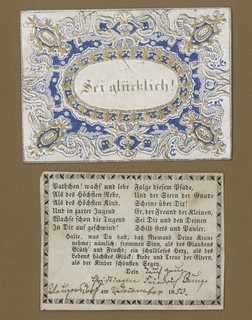 Sei glücklich!
Pathchen! wachs' und lebe
Als des Höchsten Rebe,
Als des Höchsten Kind.
Und in zarter Jugend
Wachse schon die Tugend
In Dir auf geschwind!
Folge diesem Pfade,
Und der Stern der Gnade
Scheine über Dir!
Er, der Freund der Kleinen,
Sei Dir und den Deinen
Schild stets und Panier.
Halte, was Du hast, daß Niemand Deine Krone
nehme; nämlich: frommen Sinn, als des Glaubens
Blüth' und Frucht; ein schuldloses Herz, als des
Lebens höchstes Glück; Liebe und Treue der Eltern,
als der Kinder schönsten Segen.
Dein
am